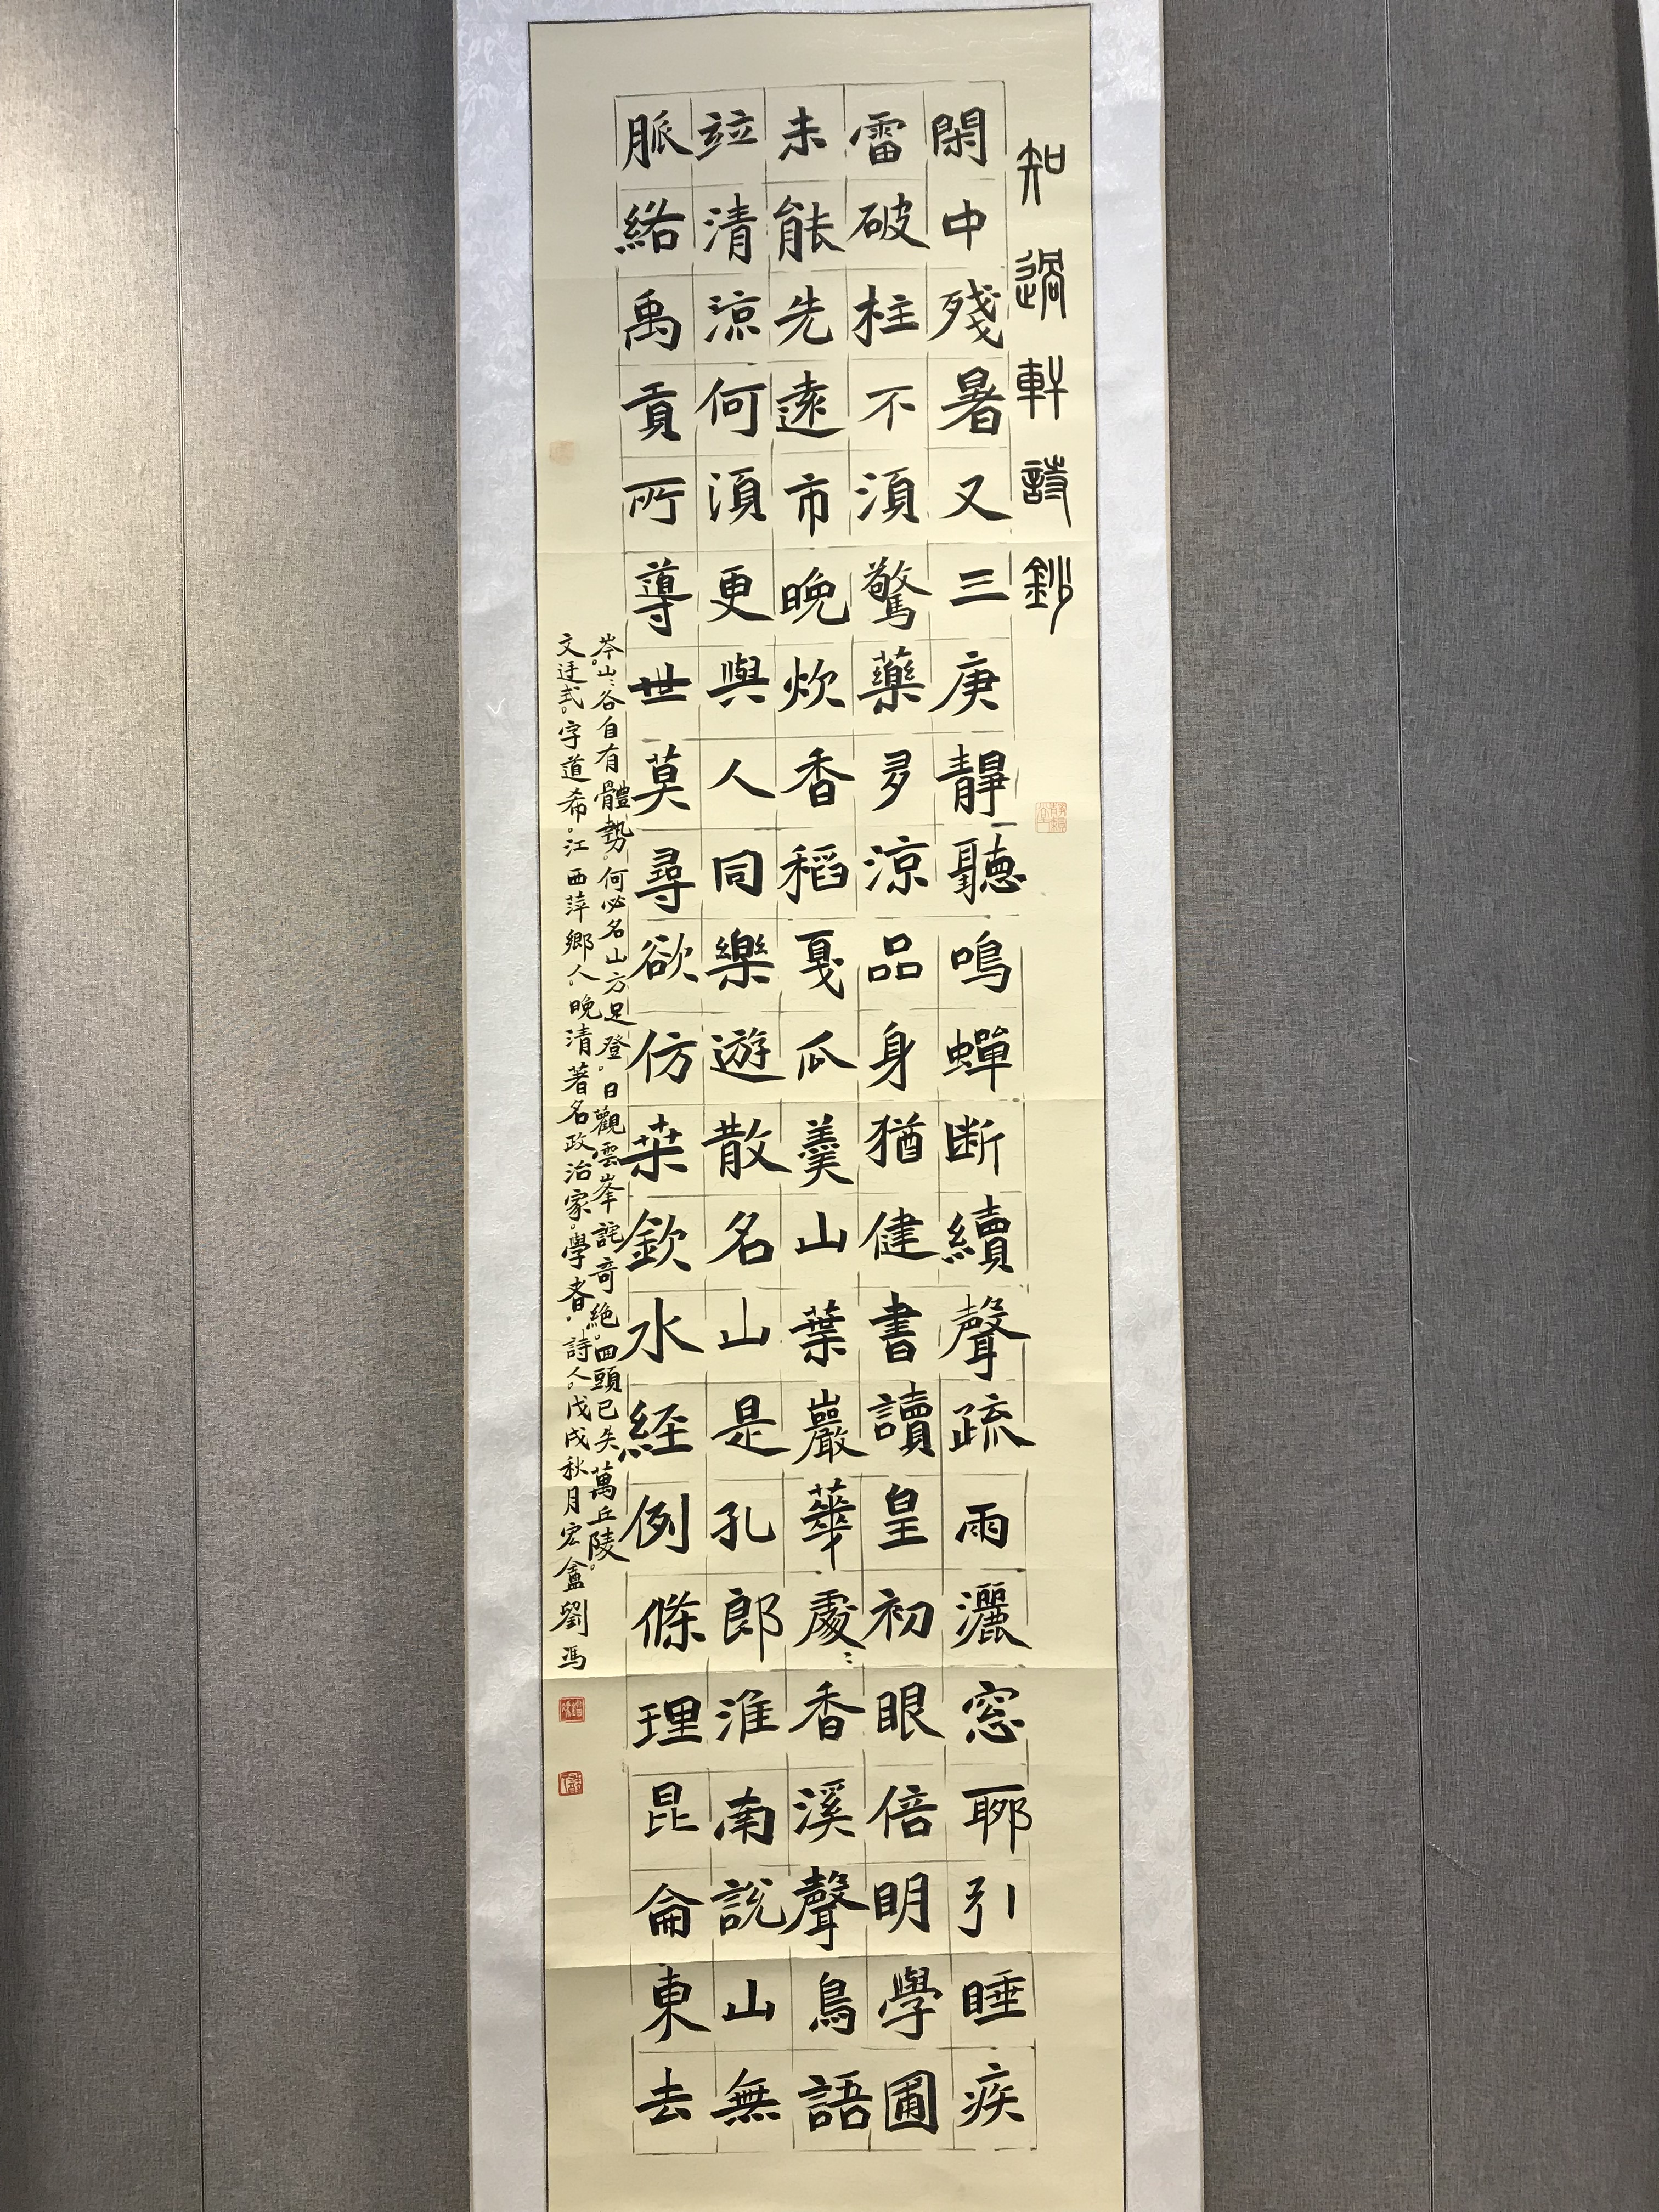 知過軒詩鈔
閑中殘暑又三庚靜聽鳴蟬斷續聲疏雨灑窓聊引睡疾
雷破柱不須驚藥多涼品身猶健書讀皇初眼倍明學圃
未能先遠市晚炊香稻戛瓜羹山葉巖華處〻香溪聲鳥語
竝清涼何須更與人同樂遊散名山是孔郎淮南說山無
脈絡禹貢所導世莫尋欲仿桒欽水經例條理昆侖東去
岑。山〻谷自有體勢。何必名山方足登。日觀雲峯詫奇絕。回頭已失萬丘陵。
文廷式。字道希。江西萍鄉人。晚清著名政治家。學者。詩人。戊戌秋月宏盦劉馮